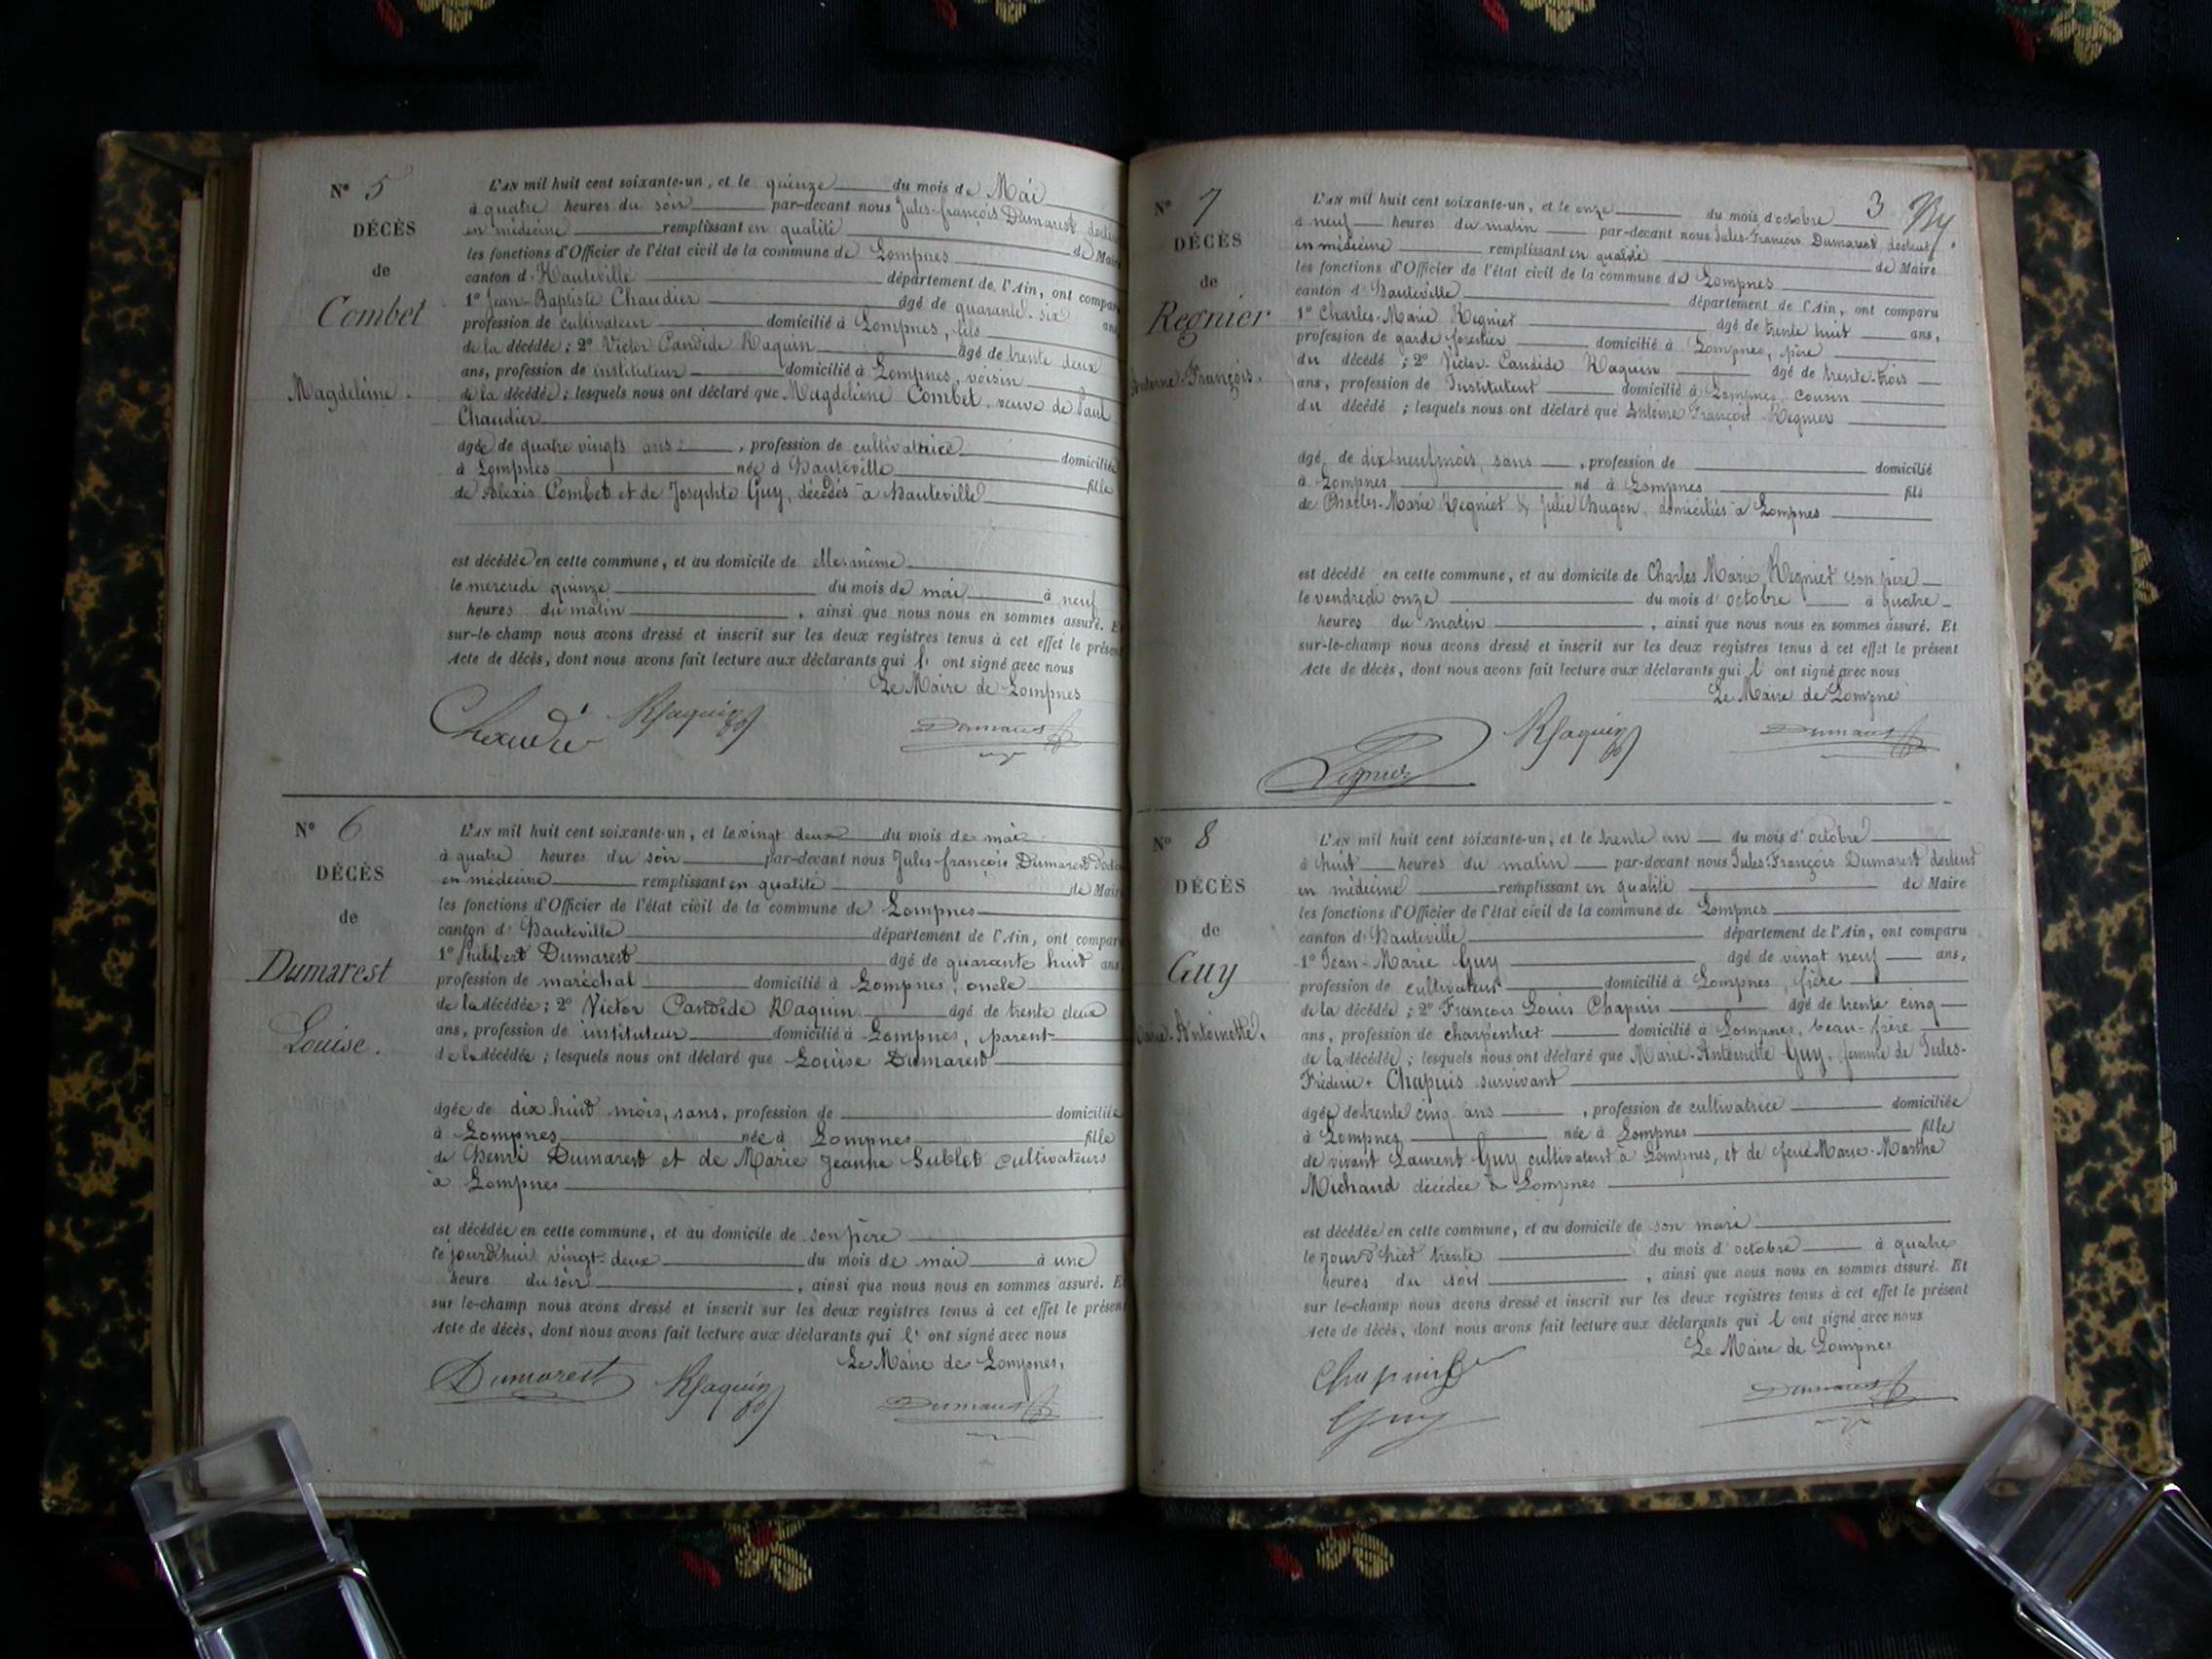 N° 5
DÉCÈS
de
Combet
Magdeleine.
L'AN mil huit cent soixante-un, et le quinze du mois de Mai
à quatre heures du soir par-devant nous Jules-françois Dumarest
en médecine remplissant en qualité de Maire
les fonctions d'Officier de l'état civil de la commune de Lompnes
canton d'Hauteville département de l'Ain, ont compar
1° Jean-Baptiste Chaudier âgé de quarante-six ans
profession de cultivateur domicilié à Lompnes, fils
de la décédée; 2° Victor Candide Raquin âgé de trente deux
ans, profession de instituteur domicilié à Lompnes, voisin
de la décédée; lesquels nous ont déclaré que Magdeleine Combet, veuve de Paul
Chaudier
âgée de quatre vingts ans, profession de cultivatrice domiciliée
à Lompnes née à Hauteville fille
de Alexis Combet et de Josephte Guy, décédés à Hauteville
est décédée en cette commune, et au domicile de elle-même
le mercredi quinze du mois de mai à neuf
heures du matin, ainsi que nous nous en sommes assuré. Et
sur-le-champ nous avons dressé et inscrit sur les deux registres tenus à cet effet le présent
Acte de décès, dont nous avons fait lecture aux déclarants qui l' ont signé avec nous
Le Maire de Lompnes
Raquin
Dumarest
N° 6
DÉCÈS
de
Dumarest
Louise.
L'AN mil huit cent soixante-un, et le vingt deux du mois de mai
à quatre heures du soir par-devant nous Jules-françois Dumarest
en médecine remplissant en qualité de Maire
les fonctions d'Officier de l'état civil de la commune de Lompnes
canton d'Hauteville département de l'Ain, ont compar
1° Philibert Dumarest âgé de quarante huit ans
profession de maréchal domicilié à Lompnes, oncle
de la décédée; 2° Victor Candide Raquin âgé de trente deux
ans, profession de instituteur domicilié à Lompnes, parent
de la décédée; lesquels nous ont déclaré que Louise Dumarest
âgée de dix huit mois, sans, profession de domiciliée
à Lompnes née à Lompnes fille
de Henri Dumarest et de Marie Jeanne Sublet cultivateurs
à Lompnes
est décédée en cette commune, et au domicile de son père
le jourd'hui vingt-deux du mois de mai à une
heure du soir, ainsi que nous nous en sommes assuré. Et
sur le-champ nous avons dressé et inscrit sur les deux registres tenus à cet effet le présent
Acte de décès, dont nous avons fait lecture aux déclarants qui l' ont signé avec nous
Le Maire de Lompnes,
Dumarest
Raquin
Dumarest
3
N° 7
DÉCÈS
de
Regnier
Antoine-François.
L'AN mil huit cent soixante-un, et le onze du mois d'octobre
à neuf heures du matin par-devant nous Jules-François Dumarest, docteur
en médecine remplissant en qualité de Maire
les fonctions d'Officier de l'état civil de la commune de Lompnes
canton d'Hauteville département de l'Ain, ont comparu
1° Charles-Marie Regnier âgé de trente huit ans,
profession de garde forestier domicilié à Lompnes, père
du décédé; 2° Victor-Candide Raquin âgé de trente-trois
ans, profession de Instituteur domicilié à Lompnes, cousin
du décédé; lesquels nous ont déclaré que Antoine François Regnier
âgé de dix-neuf mois, sans, profession de domicilié
à Lompnes né à Lompnes fils
de Charles-Marie Regnier & Julie Hugon, domiciliés à Lompnes
est décédé en cette commune, et au domicile de Charles Marie Regnier son père
le vendredi onze du mois d'octobre à quatre
heures du matin, ainsi que nous nous en sommes assuré. Et
sur-le-champ nous avons dressé et inscrit sur les deux registres tenus à cet effet le présent
Acte de décès, dont nous avons fait lecture aux déclarants qui l ont signé avec nous
Le Maire de Lompnes
Regnier
Raquin
Dumarest
N° 8
DÉCÈS
de
Guy
Marie-Antoinette.
L'AN mil huit cent soixante-un, et le trente un du mois d'octobre
à huit heures du matin par-devant nous Jules-François Dumarest docteur
en médecine remplissant en qualité de Maire
les fonctions d'Officier de l'état civil de la commune de Lompnes
canton d'Hauteville département de l'Ain, ont comparu
1° Jean-Marie Guy âgé de vingt neuf ans,
profession de cultivateur domicilié à Lompnes, frère
de la décédée; 2° François Louis Chapuis âgé de trente cinq
ans, profession de charpentier domicilié à Lompnes, beau-frère
de la décédée; lesquels nous ont déclaré que Marie-Antoinette Guy, femme de Jules-
Frédéric Chapuis survivant
âgée de trente cinq ans, profession de cultivatrice domiciliée
à Lompnes née à Lompnes fille
de vivant Laurent Guy cultivateur à Lompnes, et de feue Marie-Marthe
Michaud décédée à Lompnes
est décédée en cette commune, et au domicile de son mari
le jour d'hier trente du mois d'octobre à quatre
heures du soir, ainsi que nous nous en sommes assuré. Et
sur le-champ nous avons dressé et inscrit sur les deux registres tenus à cet effet le présent
Acte de décès, dont nous avons fait lecture aux déclarants qui l ont signé avec nous
Le Maire de Lompnes
Chapuis
Guy
Dumarest